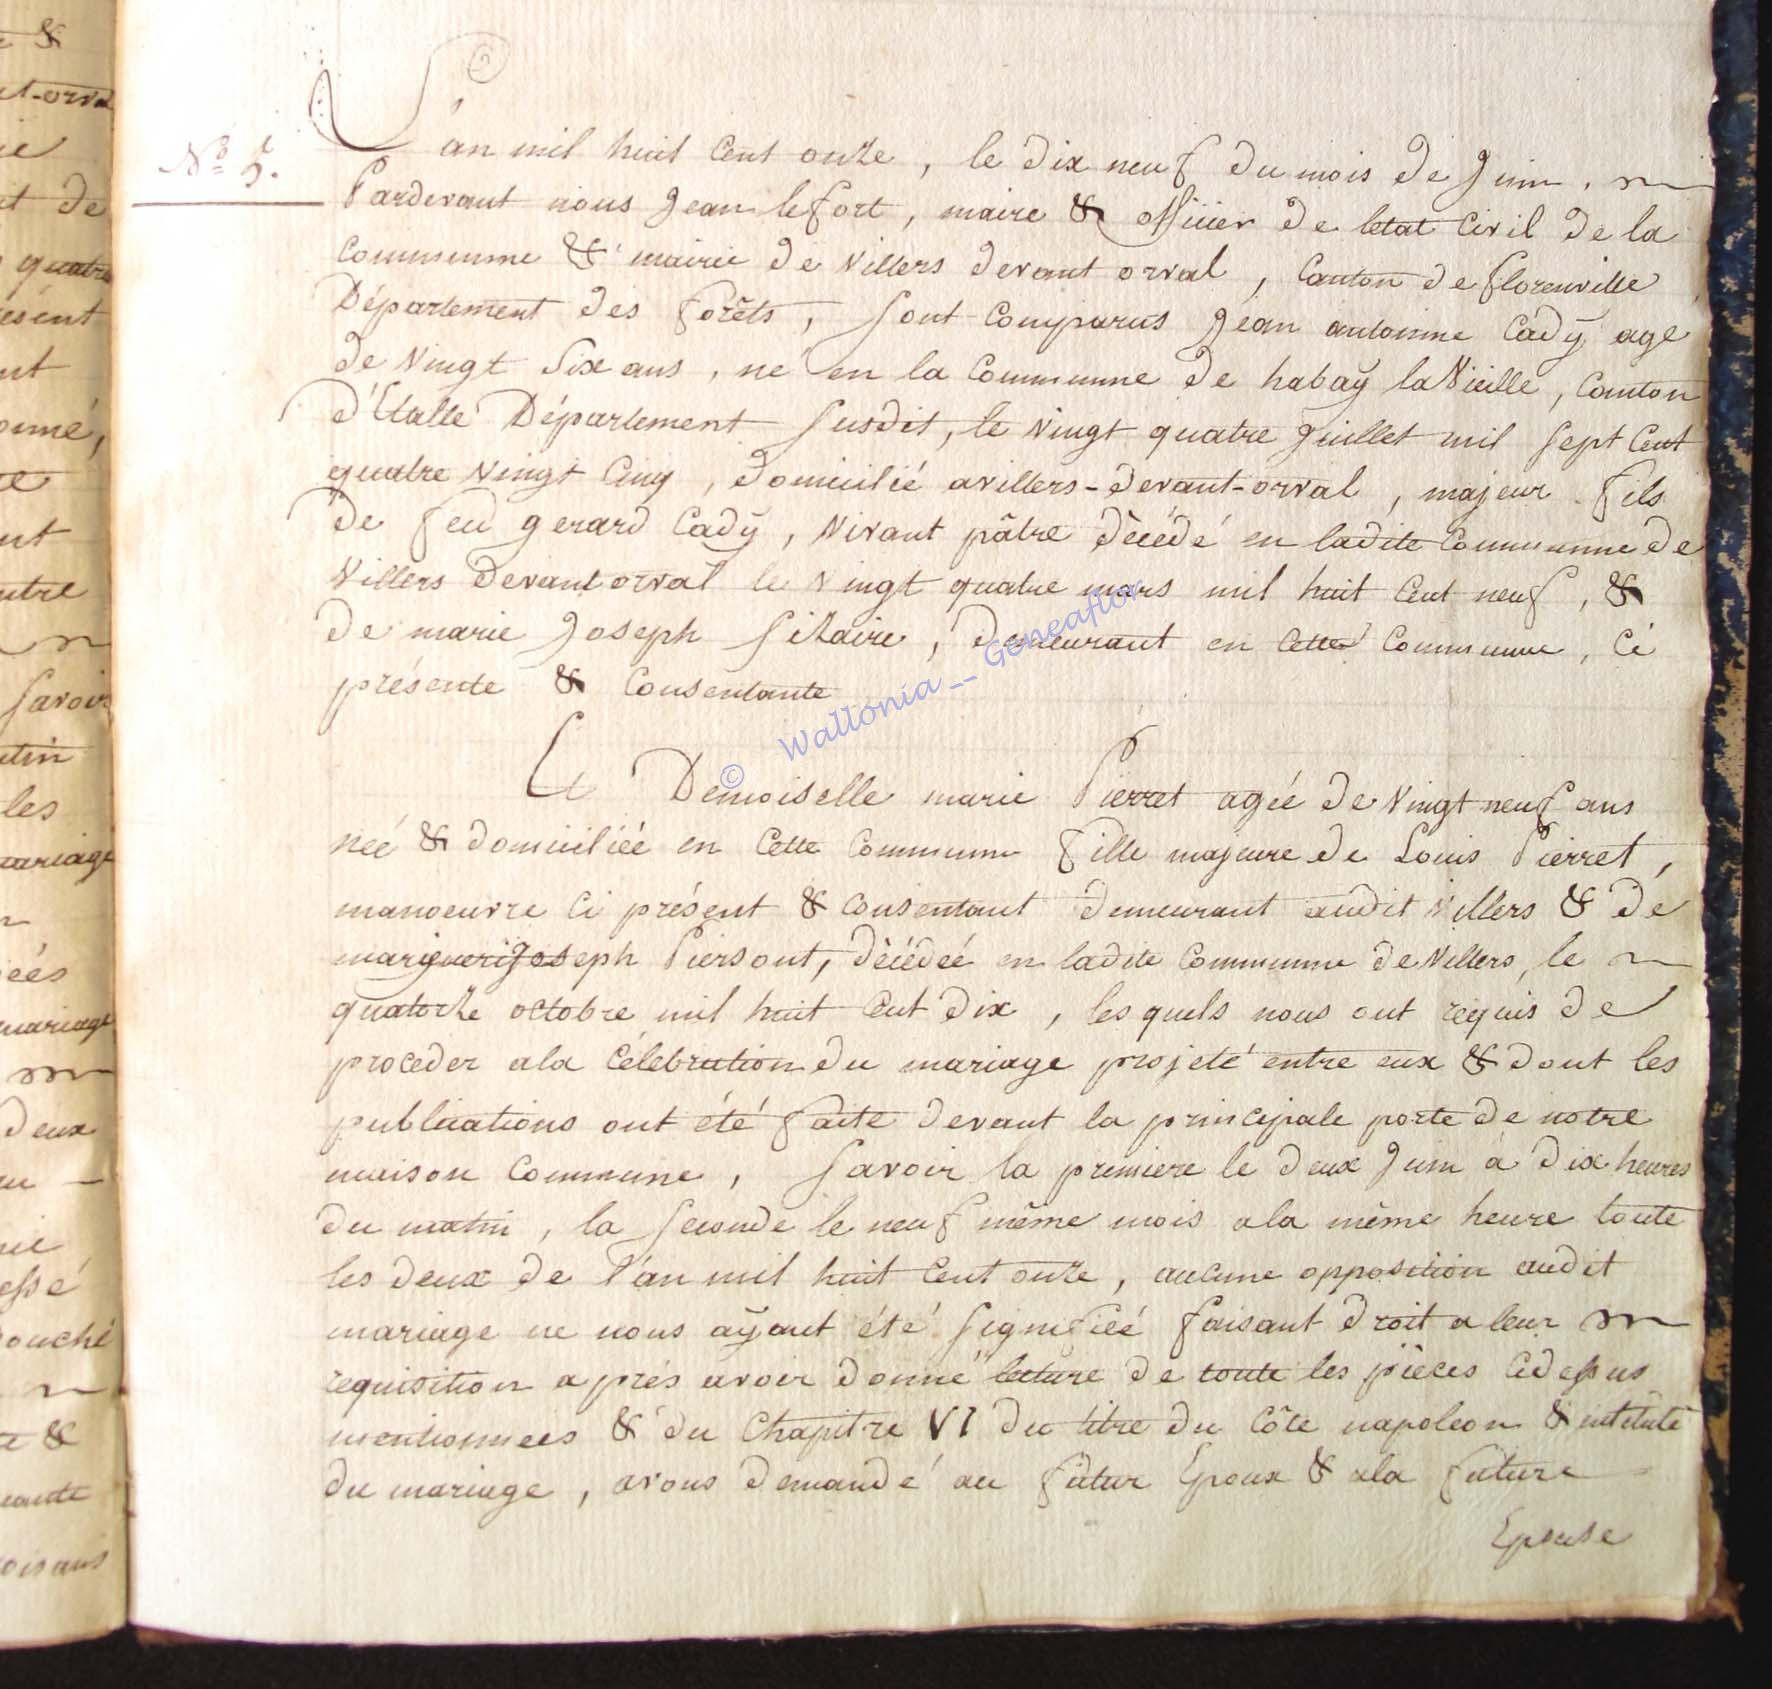 N° 5.
L'an mil huit Cent onze, le dix neuf du mois de Juin.
Pardevant nous Jean lefort, maire & officier de letat Civil de la
Communne & mairie de Villers devant orval, Canton de florenville
Département des forêts, sont Comparus Jean antoinne Cadÿ age
de Vingt Six ans, né en la Communne de habaÿ la Vieille, Canton
d'Etalle Département susdit, le Vingt quatre Juillet mil sept Cent
quatre Vingt Cinq, domicilié avillers-devant-orval, majeur fils
de feu gerard Cadÿ, Vivant pâtre décédé en ladite Communne de
Villers devant orval le Vingt quatre mars mil huit Cent neuf, &
de marie Joseph Silaire, demeurant en Cette Communne, Ci
présente & Consentante
Et Demoiselle marie Pierret agée de Vingt neuf ans
neé & domiciliée en Cette Communne fille majeure de Louis Pierret,
manoeuvre Ci présent & Consentant demeurant audit Villers & de
Joseph Piersont, décédeé en ladite Communne de Villers, le
quatorze octobre mil huit Cent dix, les quels nous ont requis de
proceder ala Célebration du mariage projeté entre eux & dont les
publications ont été faite devant la principale porte de notre
maison Commune, Savoir la premiere le deux Juin à dix heures
du matin, la seconde le neuf même mois ala même heure toute
les deux de l'an mil huit Cent onze, aucune opposition audit
mariage ne nous aÿant été signifiéé faisant droit a leur
requisition aprés avoir donné lecture de toute les pièces Cidessus
mentionnees & du Chapitre VI du titre du Côte napoleon & intitulé
du mariage, avons demandé au futur Epoux & ala future
Epouse
© Wallonia__Geneaflor
& 
de
quatre
ésent
nt
Savoir
les
mariage
deux
ouché